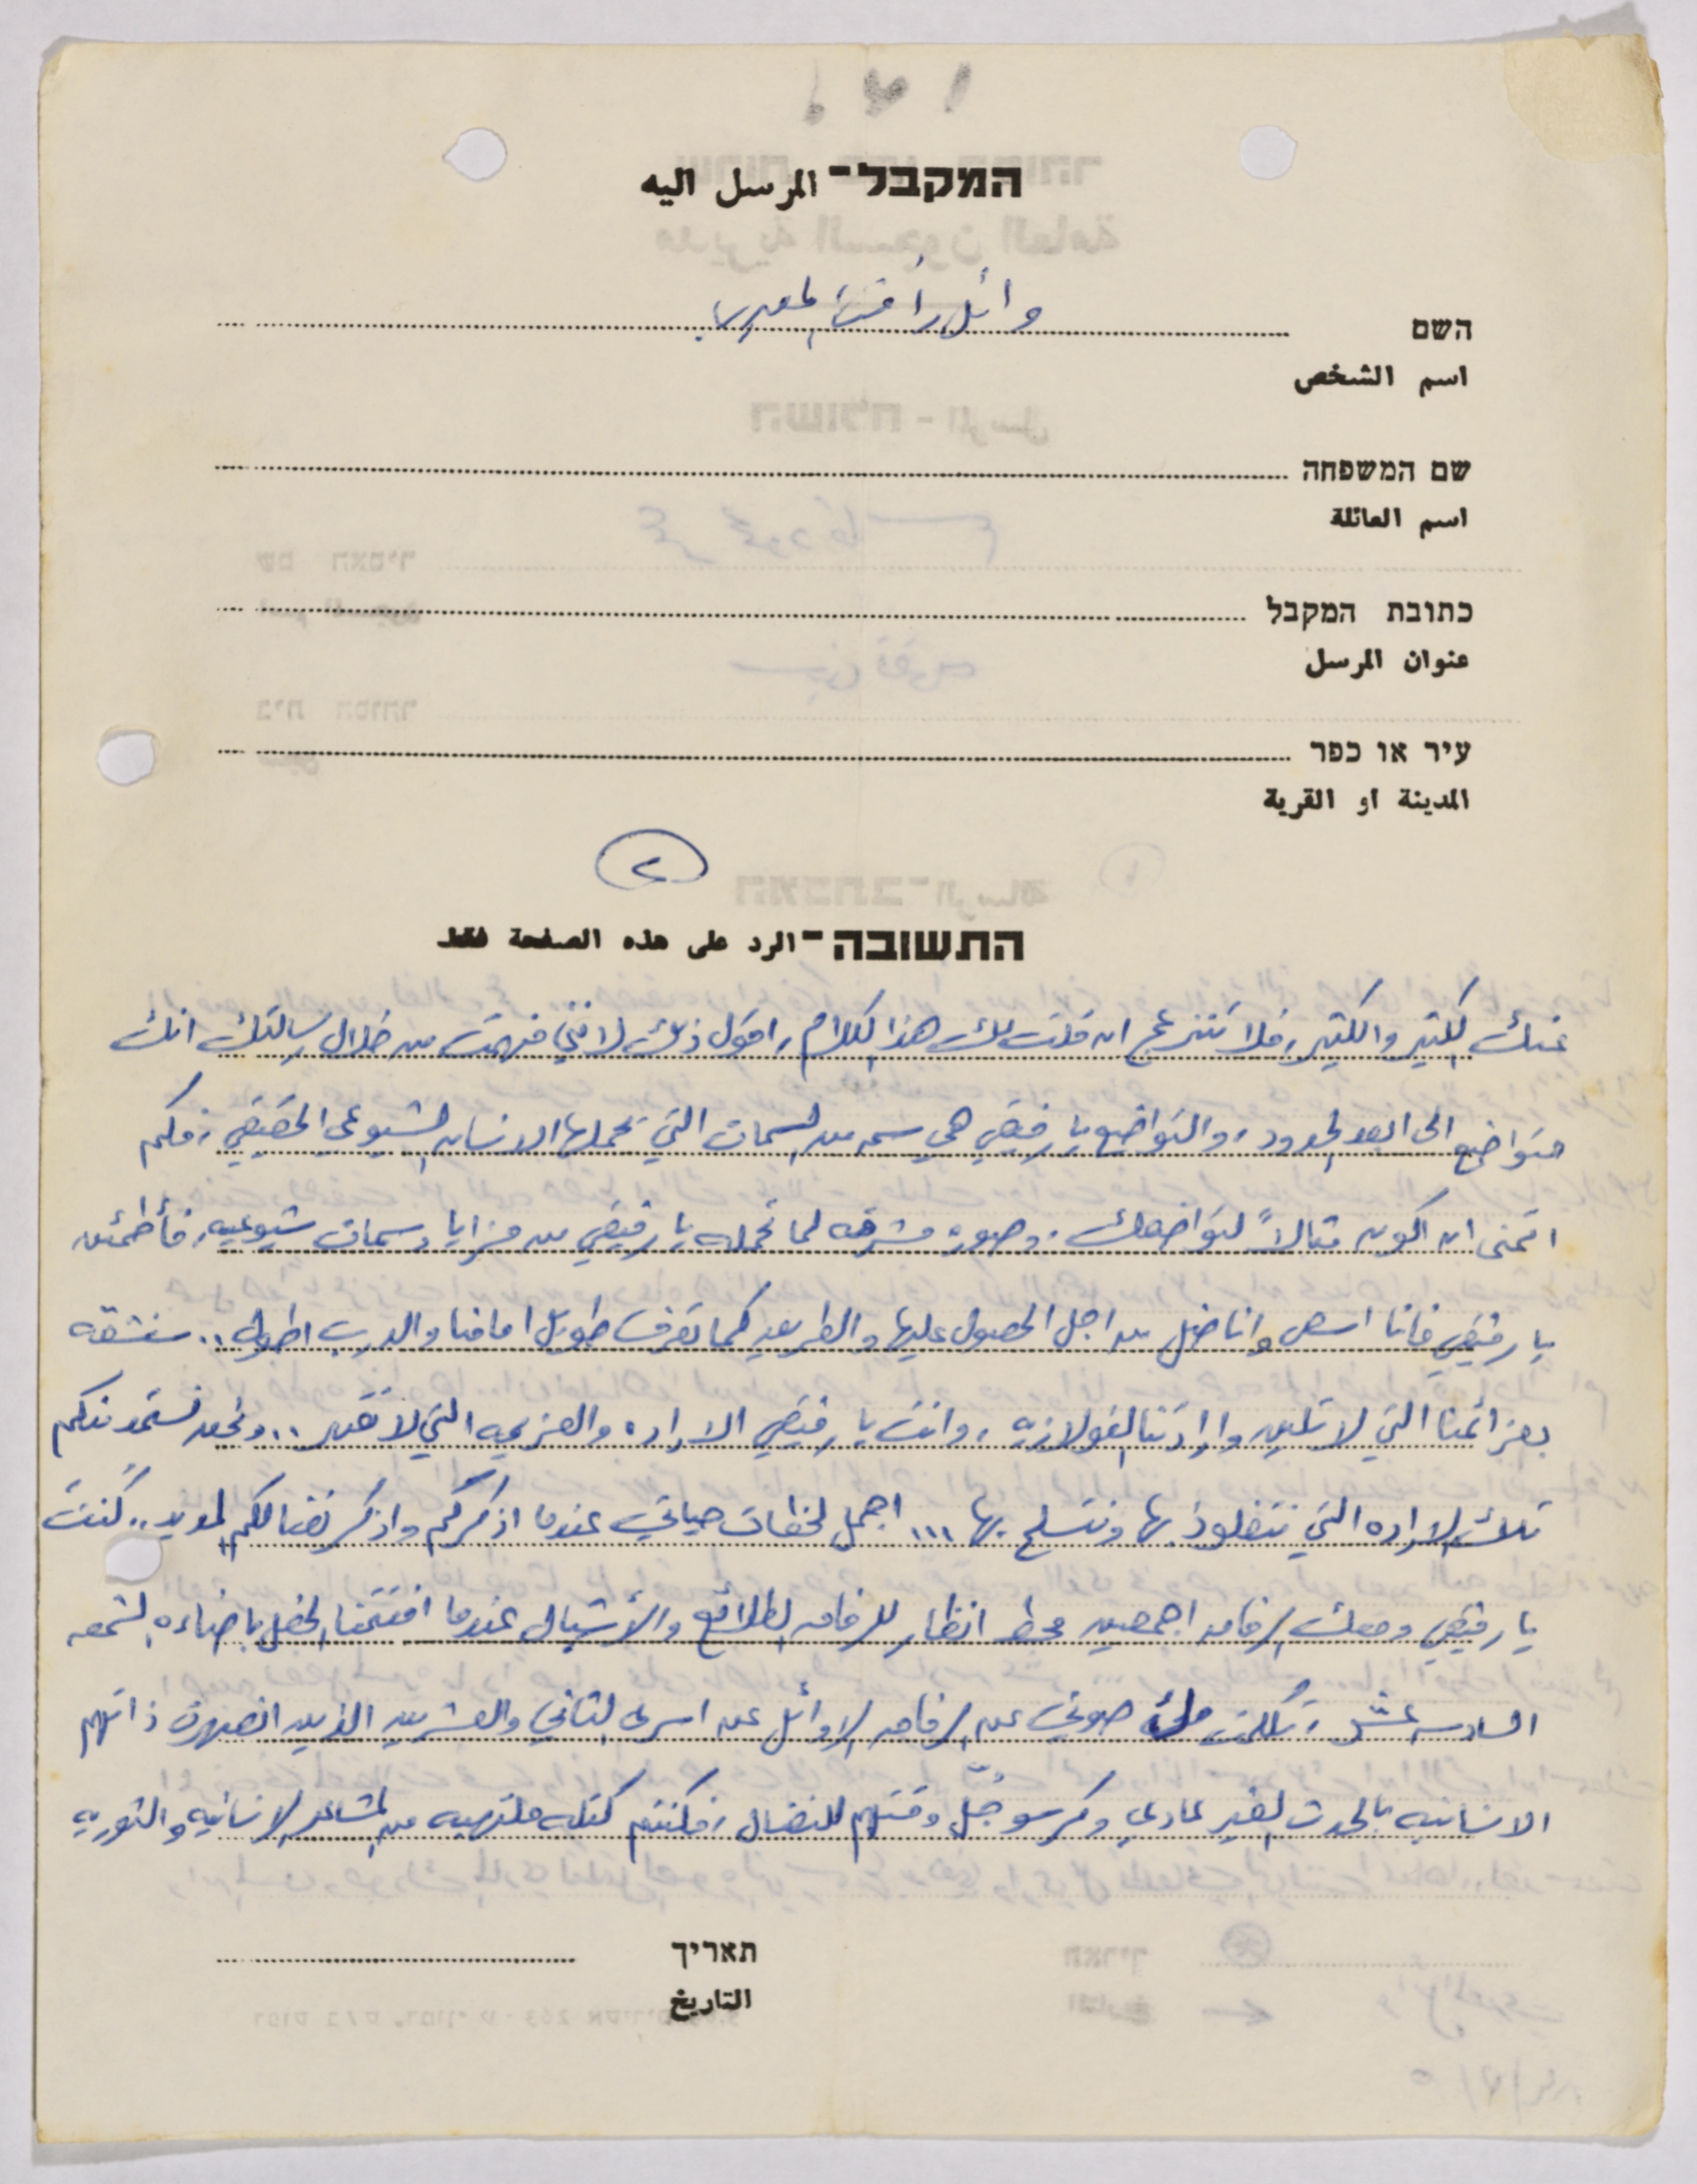 המקבל - المرسل اليه
وائل رأفت
השם
اسم الشخص
שם המשפחה
اسم العائلة
כתובת המקבל
عنوان المرسل
עיר או כפר
المدينة او القرية
٢
התשובה - الرد على هذه الصفحة فقط
عنك الكثير والكثير، فلا تنزعج ان قلت لك هذا الكلام، اقول ذلك لانني فهمت من خلال رسالتك انك
متواضع الى ابعد الحدود، والتواضع يا رفيقي هي سمه من السمات التي يحملها الانسان الشيوعي الحقيقي، فلكم
اتمنى ان اكون مثالاً لتواضعك. وصوره مشرقه لما تحمله يا رفيقي من مزايا وسمات شيوعيه، فأطمئن
يا رفيقي فانا اسعى واناضل من اجل الحصول عليها والطريق كما تعرف طويل امامنا والدرب اطول.. سنشقه
بعزائمنا التي لا تلين وارادتنا الفولاذيه، وانت يا رفيقي الاراده والعزيمه التي لا تقهر.. ونحن نستمد منكم
تلك الاراده التي نتفلوذ بها ونتسلح بها ... اجمل لحظات حياتي عندما اذكركم واذكر نضالكم المديد.. كنت
يا رفيقي ومعك الرفاق اجمعين محط انظار للرفاق الطلائع والأشبال عندما افتتحنا الحفل باضاءه الشمعه
السادسه عشر، تكلمت ملئ صوتي عن الرفاق الاوائل عن اسرى الثاني والعشرين الذين انصهرت ذاتهم
الانسانيه بالحدث الغير عادي وكرسو جُلّ وقتهم للنضال، فكنتم كتله ملتهبه من المشاعر الانسانيه والثوريه
תאריך
التاريخ